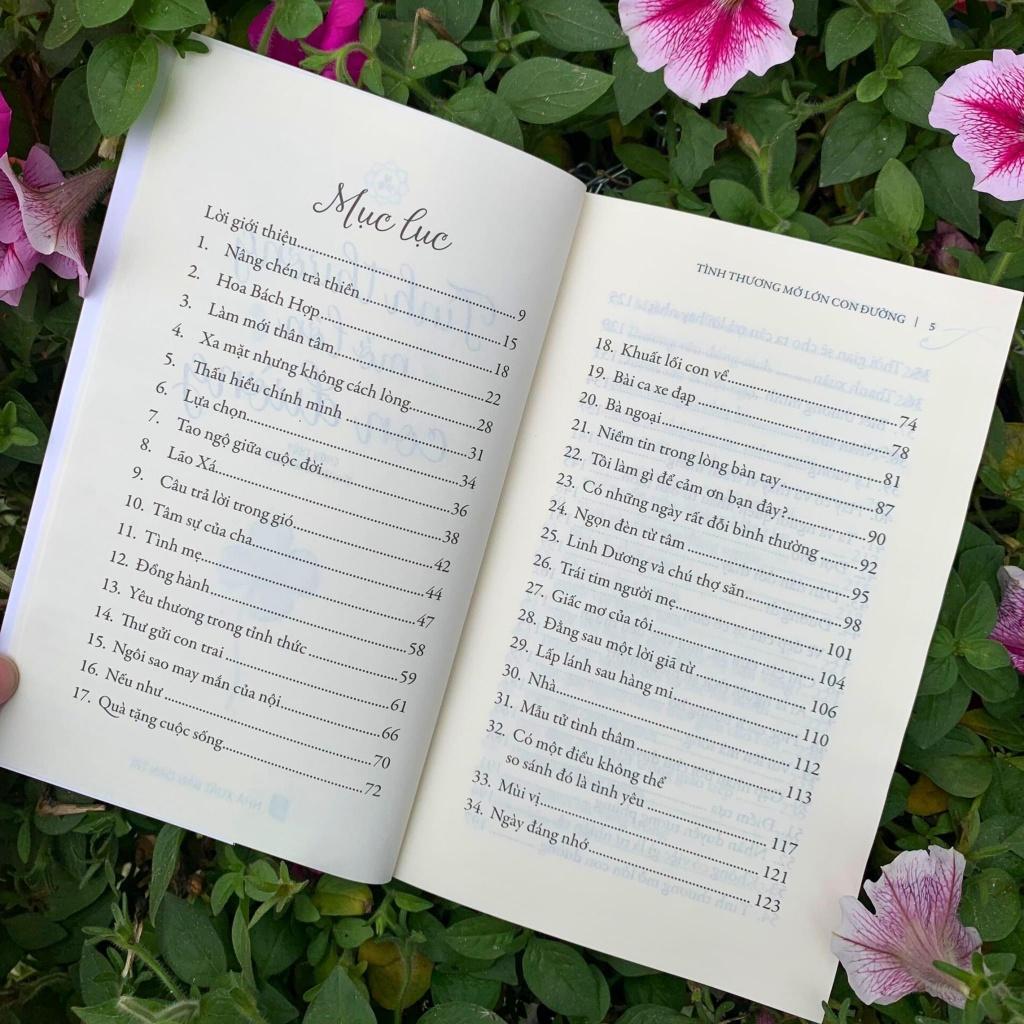 Mục lục
Lời giới thiệu........9
1. Nâng chén trà thiền........15
2. Hoa Bách Hợp........18
3. Làm mới thân tâm........22
4. Xa mặt nhưng không cách lòng........28
5. Thấu hiểu chính mình........31
6. Lựa chọn........34
7. Tao ngộ giữa cuộc đời........36
8. Lão Xá........38
9. Câu trả lời trong gió........42
10. Tâm sự của cha........44
11. Tình mẹ........47
12. Đồng hành........58
13. Yêu thương trong tỉnh thức........59
14. Thư gửi con trai........61
15. Ngôi sao may mắn của nội........66
16. Nếu như........70
17. Quà tặng cuộc sống........72
TÌNH THƯƠNG MỞ LỚN CON ĐƯỜNG | 5
18. Khuất lối con về........74
19. Bài ca xe đạp........78
20. Bà ngoại........81
21. Niềm tin trong lòng bàn tay........87
22. Tôi làm gì để cảm ơn bạn đây?........90
23. Có những ngày rất đỗi bình thường........92
24. Ngọn đèn từ tâm........95
25. Linh Dương và chú thợ săn........98
26. Trái tim người mẹ........101
27. Giấc mơ của tôi........104
28. Đằng sau một lời giã từ........106
29. Lấp lánh sau hàng mi........110
30. Nhà........112
31. Mẫu tử tình thâm........113
32. Có một điều không thể
so sánh đó là tình yêu........117
33. Mùi vị........121
34. Ngày đáng nhớ........123